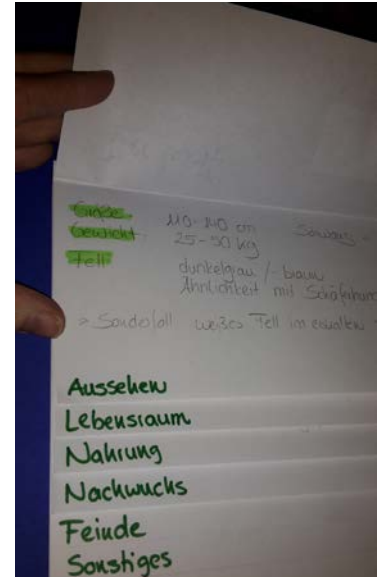 Größe 110-140 cm Schwanz -
Gewicht 25-50 kg
Fell dunkelgrau / -braun
Ähnlichkeit mit Schäferhun
> Sonderfall weißes Fell im
Aussehen
Lebensraum
Nahrung
Nachwuchs
Feinde
Sonstiges